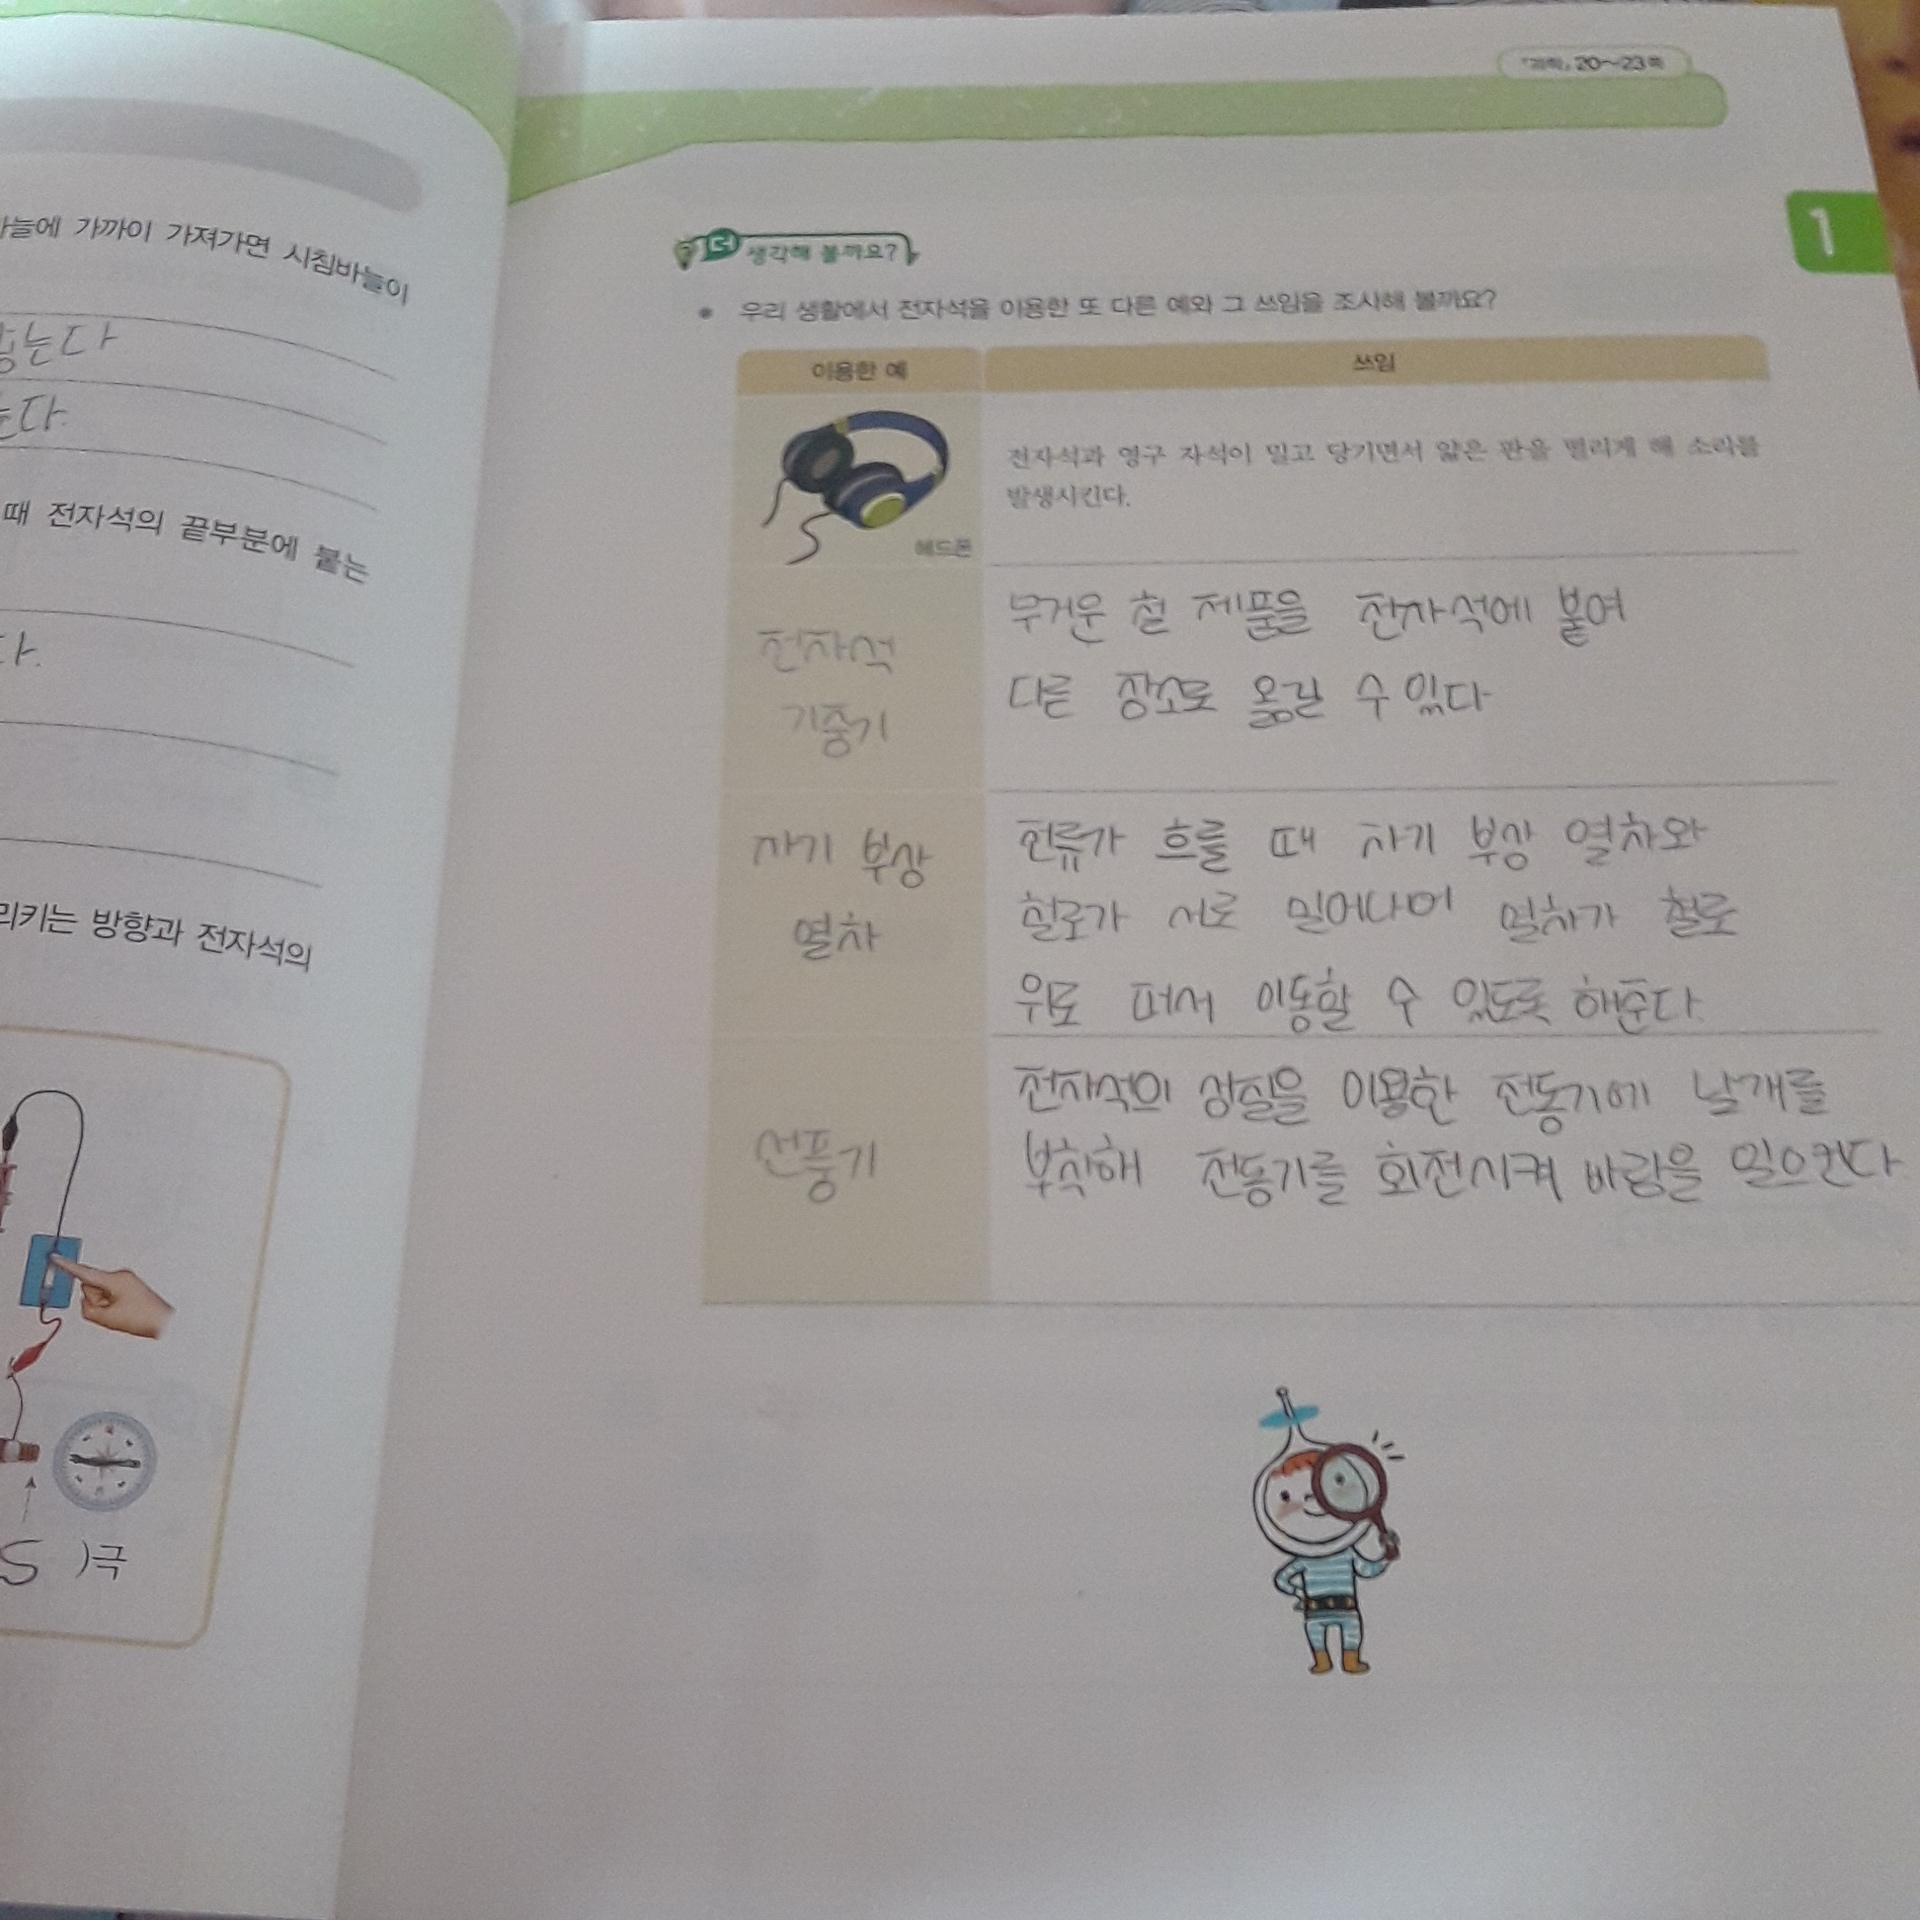 바늘에 가까이 가져가면 시침바늘이
는다
는다.
때 전자석의 끝부분에 붙는
다.
리키는 방향과 전자석의
S )극
『과학』 20~23쪽
1
더 생각해 볼까요?
• 우리 생활에서 전자석을 이용한 또 다른 예와 그 쓰임을 조사해 볼까요?
이용한 예 쓰임
전자석과 영구 자석이 밀고 당기면서 얇은 판을 떨리게 해 소리를
발생시킨다.
헤드폰
전자석
기중기
무거운 철 제품을 전자석에 붙여
다른 장소로 옮길 수 있다
자기 부상
열차
전류가 흐를 때 자기 부상 열차와
철로가 서로 밀어내어 열차가 철로
위로 떠서 이동할 수 있도록 해준다.
선풍기
전자석의 성질을 이용한 전동기에 날개를
부착해 전동기를 회전시켜 바람을 일으킨다